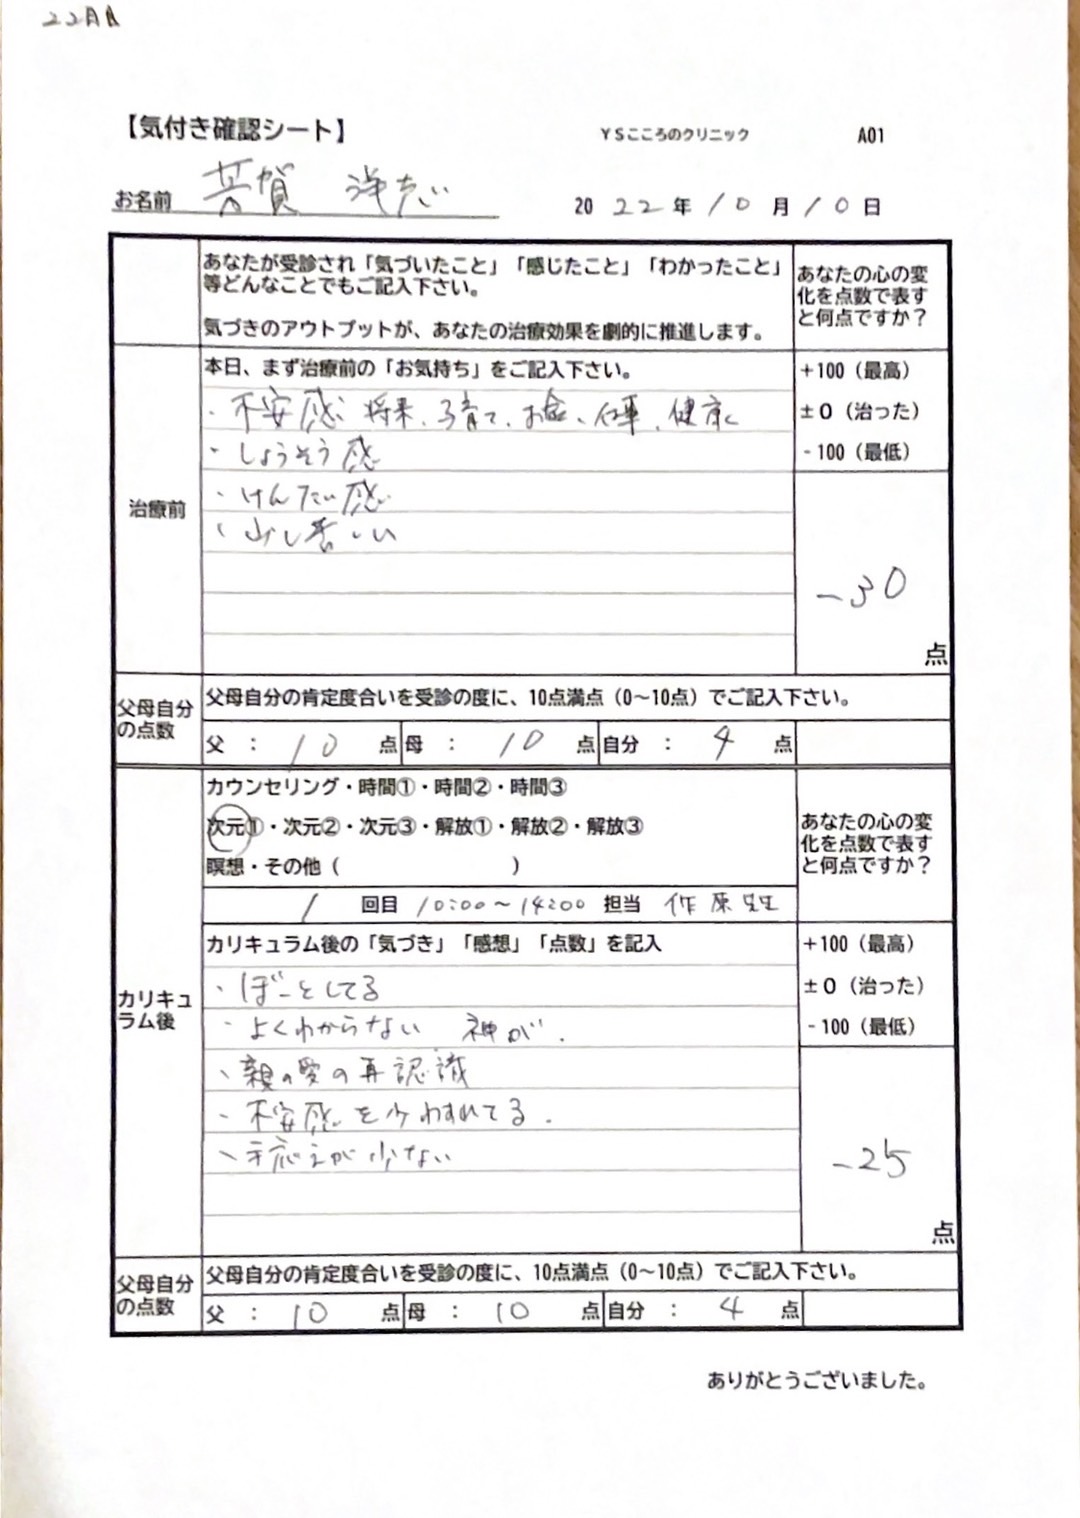 22月
【気付き確認シート】 YSこころのクリニック A01
お名前 芳賀 洋
2022年10月10日
あなたが受診され「気づいたこと」「感じたこと」「わかったこと」
等どんなことでもご記入下さい。
気づきのアウトプットが、あなたの治療効果を劇的に推進します。
あなたの心の変
化を点数で表す
と何点ですか？
治療前
本日、まず治療前の「お気持ち」をご記入下さい。
・不安感 将来、子育て、お金、仕事、健康
・しょうそう感
・けんたい感
・少し苦しい
+100（最高）
±0（治った）
-100（最低）
-30
点
父母自分
の点数
父母自分の肯定度合いを受診の度に、10点満点（0～10点）でご記入下さい。
父：10点 母：10点 自分：4点
カリキュ
ラム後
カウンセリング・時間①・時間②・時間③
次元①・次元②・次元③・解放①・解放②・解放③
瞑想・その他（ ）
1 回目 10:00～14:00 担当 作原先生
あなたの心の変
化を点数で表す
と何点ですか？
カリキュラム後の「気づき」「感想」「点数」を記入
・ぼーとしてる
・よくわからない 神が.
・親の愛の再認識
・不安感を少わすれてる.
・手応えが少ない
+100（最高）
±0（治った）
-100（最低）
-25
点
父母自分
の点数
父母自分の肯定度合いを受診の度に、10点満点（0～10点）でご記入下さい。
父：10点 母：10点 自分：4点
ありがとうございました。